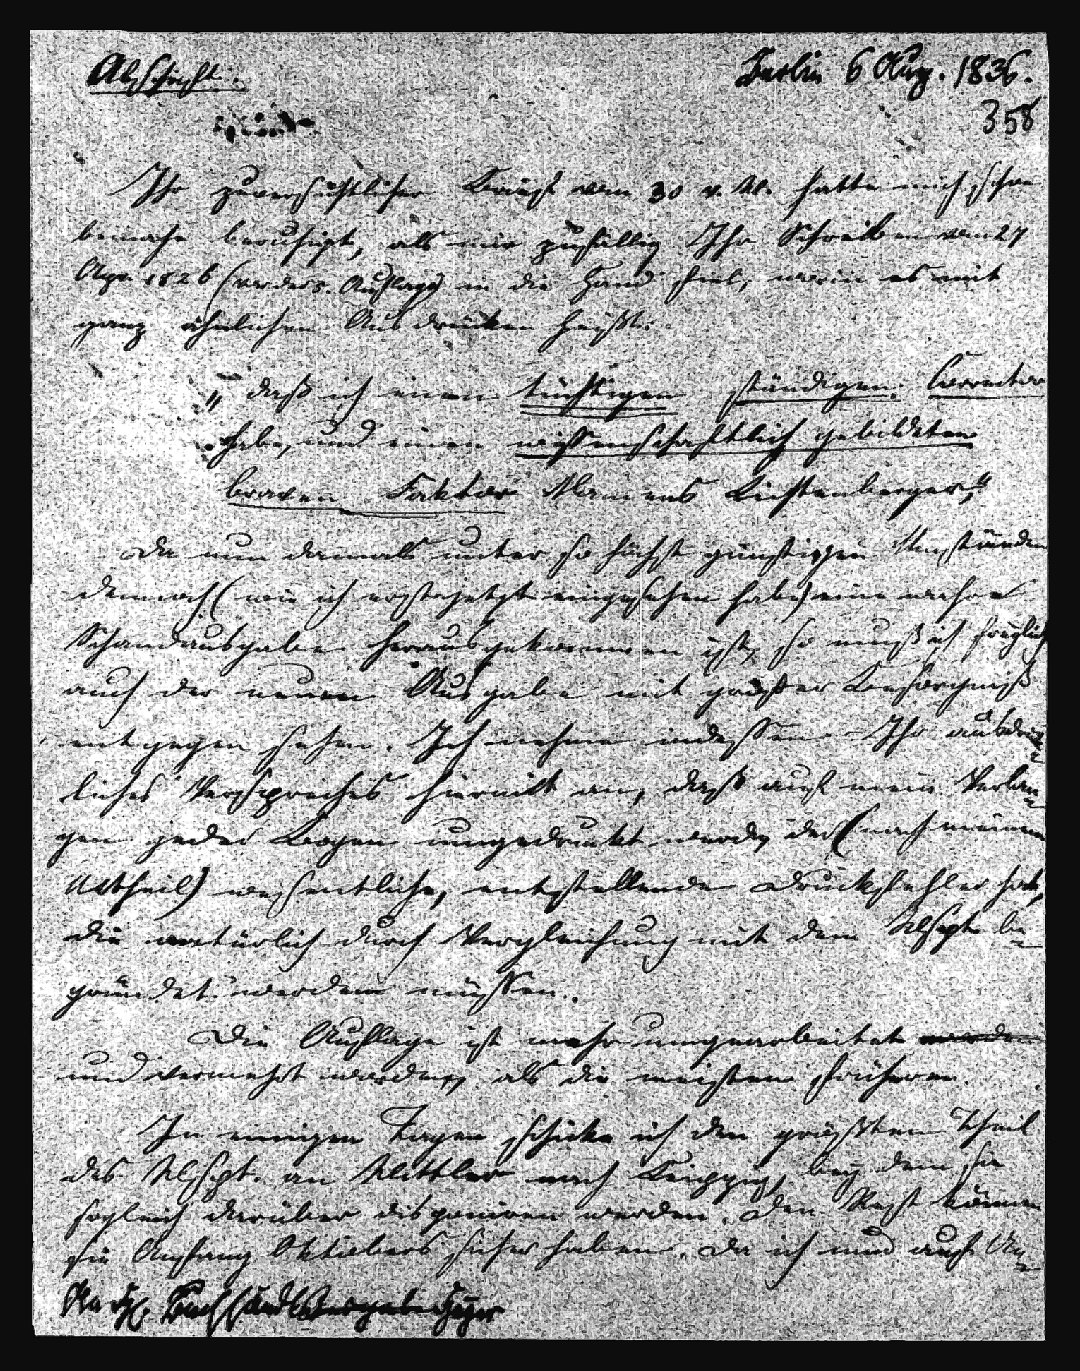 Abschrift.
Berlin 6 Aug. 1836.
358
Ihr zuversichtlicher Brief vom 30 v. M. hatte mich schon
beinahe beruhigt, als mir zufällig Ihr Schreiben vom 27
Apr. 1826 (vor der 3. Auflage) in die Hand fiel, worin es mit
ganz ähnlichen Ausdrücken heißt:
„daß ich einen tüchtigen ständigen Corrector
habe, und einen wissenschaftlich gebildeten
braven Faktor Namens Lichtenberger,“
Da nun damals unter so höchst günstigen Umständen
dennoch (wie ich erst jetzt eingesehen habe) eine wahre
Schandausgabe herausgekommen ist, so muß ich freylich
auch der neuen Ausgabe mit großer Besorgniß
entgegen sehen. Ich nehme indessen Ihr ausdrück-
liches Versprechen hiermit an, daß auf mein Verlan-
gen jeder Bogen umgedruckt werde, der (nach meinem
Urtheil) wesentliche, entstellende Druckfehler hat,
die natürlich durch Vergleichung mit dem Mscpt be-
gründet werden müssen.
Die Auflage ist mehr umgearbeitet
und vermehrt worden, als die meisten früheren.
In einigen Tagen schicke ich den größten Theil
des Mscpt. an Mittler nach Leipzig, bey dem Sie
sogleich darüber disponiren werden. Den Rest können
Sie Anfang Oktobers sicher haben. Da ich nun auf An-